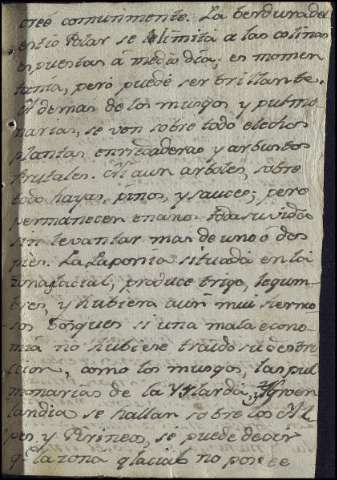 cree comunmente. La verdura del
estio Polar se limita a las colinas
expuestas á medio dia; es momen
tanea, pero puede ser brillante.
Ademas de los musgos y pulmo
narias, se ven sobre todo elechos
plantas enredaderas y arbustos
frutales. Aun arboles, sobre
todo hayas, pinos, y sauces; pero
permanecen enanos toda su vida
sin levantar mas de uno ó dos
pies. La Laponia situada en la
zona glacial, produce trigo, legum
bres, y hubiera aun mui hermo
sos Bosques si una mala econo
mia no hubiese traido su destru
ccion, como los musgos, las pul
monarias de la Yslanda, y Groen
landia se hallan sobre los Al
pes, y Pirineos, se puede decir
q.e la zona glacial no posee